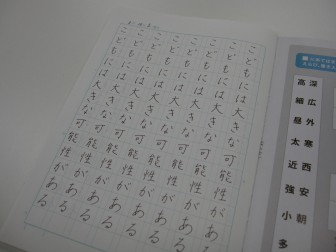 深広外寒西安朝
高細昼太近強小多
こどもには大きな可能性がある
こどもには大きな可能性がある
こどもには大きな可能性がある
こどもには大きな可能性がある
こどもには大きな可能性がある
こどもには大きな可能性がある
こどもには大きな可能性がある
こどもには大きな可能性がある